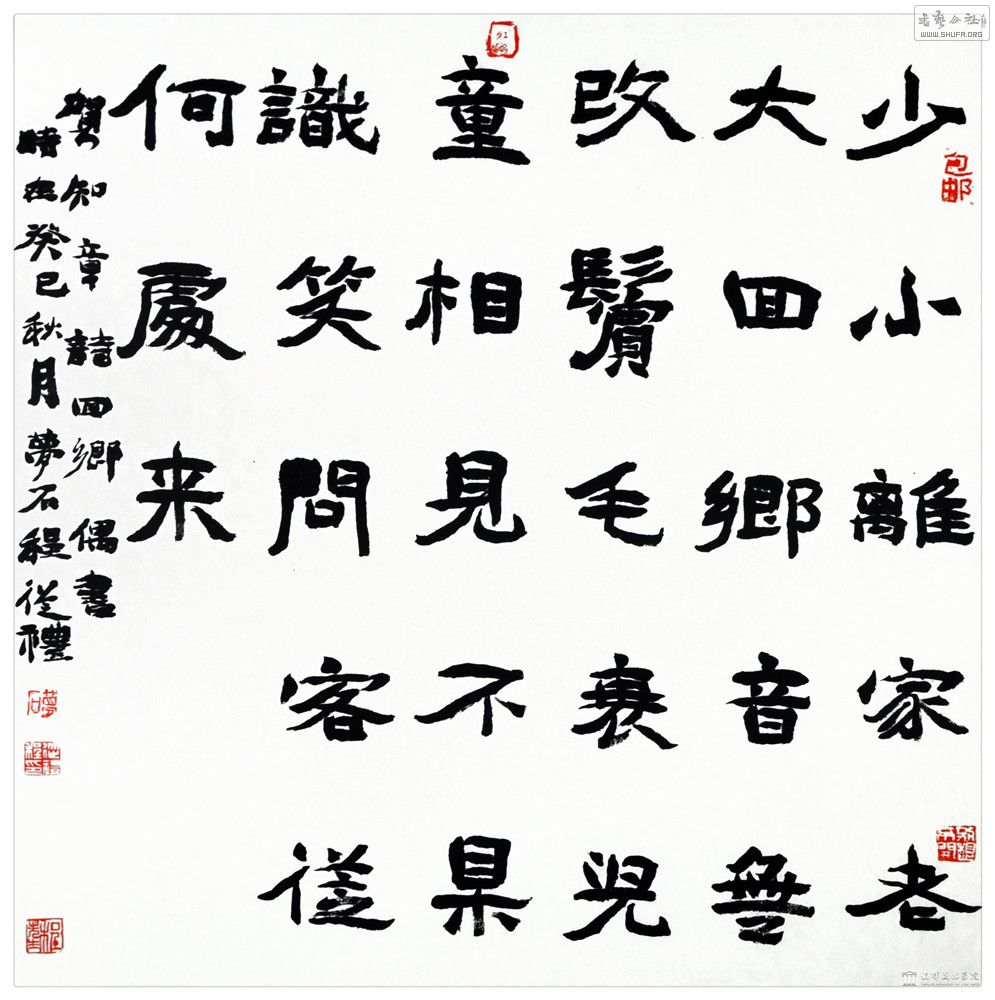 少小離家老
大回鄉音無
改鬢毛衰兒
童相見不相
識笑問客從
何處来
賀知章詩回鄉偶書
時在癸巳秋月夢石程從禮
夢石
書藝公社
WWW.SHUFA.ORG